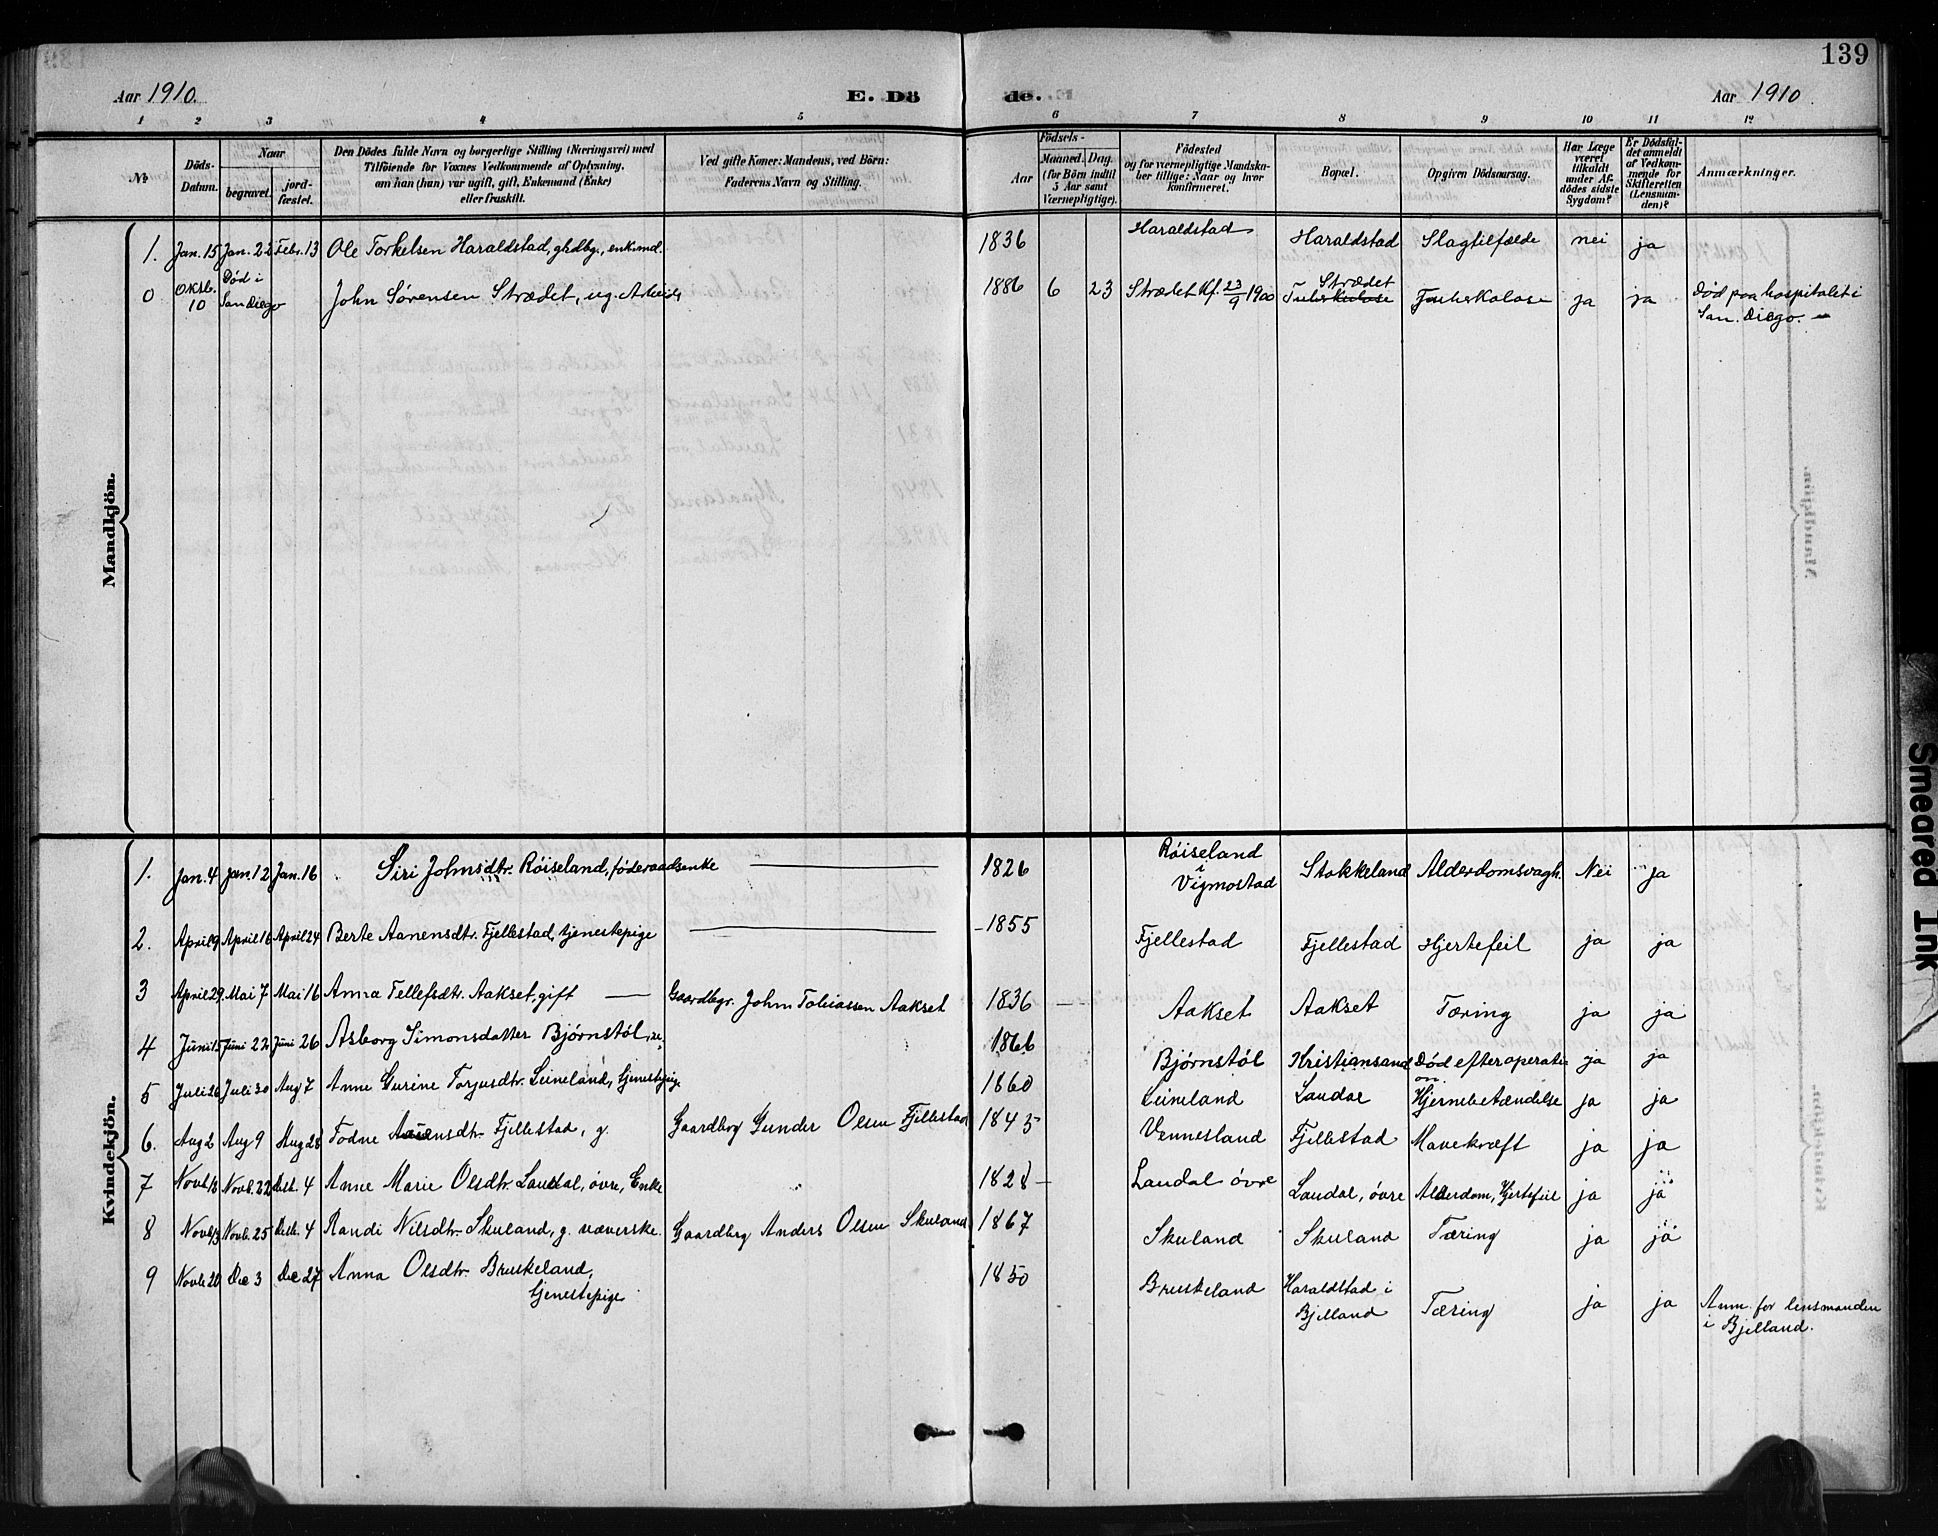 139
Aar 1910.
E. Dö
de.
Aar 1910.
1 2 3 4 5 6 7 8 9 10 11 12
№
Döds-
Datum.
Naar
begravet.
jord-
fæstet.
Den Dödes fulde Navn og borgerlige Stilling (Næringsvei) med
Tilföiende for Voxnes Vedkommende af Oplysning,
om han (hun) var ugift, gift, Enkemand (Enke)
eller fraskilt.
Ved gifte Koner: Mandens, ved Börn:
Faderens Navn og Stilling.
Födsels-
Aar
Maaned. Dag.
(for Börn indtil
5 Aar samt
Værnepligtige).
Födested
og for værnepligtige Mandska-
ber tillige: Naar og hvor
konfirmeret.
Bopæl.
Opgiven Dödsaarsag.
Har Læge
været
tilkaldt
under Af-
dödes sidste
Sygdom?
Er Dödsfal-
det anmeldt
af Vedkom-
mende for
Skifteretten
(Lensman-
den)?
Anmærkninger.
Mandkjön.
1. Jan. 15 Jan. 22 Febr. 13 Ole Torkelsen Haraldstad, grdbg., enkmd. 1836 Haraldstad Haraldstad Slagtilfælde nei ja
0 Oktb. 10 Død i San Diego John Sørensen Strædet, ug. Arbeid. 1886 6 23 Strædet Kf. 23/9 1900 Tuberkulose Strædet Tuberkolose ja ja Død paa hospitalet i
San. Diego. —
Kvindekjön.
1. Jan. 4 Jan. 12 Jan. 16 Siri Johnsdtr. Røiseland, føderaadsenke 1826 Røiseland i Vigmostad Stokkeland Alderdomsvagh. Nei ja
2. April 9 April 16 April 24 Berte Aanensdtr. Fjellestad, tjenestepige 1855 Fjellestad Fjellestad Hjertefeil ja ja
3 April 29 Mai 7 Mai 16 Anna Tellefsdtr. Aakset, gift Gaardbgr. John Tobiassen Aakset 1836 Aakset Aakset Tæring ja ja
4 Juni 15 Juni 22 Juni 26 Asborg Simonsdatter Bjørnstøl 1866 Bjørnstøl Kristiansand Død efter operati
on. ja ja
5 Juli 26 Juli 30 Aug 7 Anne Gurine Torjusdtr. Leineland, tjenestepige 1860 Leineland Laudal Hjernebetændelse ja ja
6. Aug 2 Aug 9 Aug 28 Todne Aasensdtr. Fjellestad, g. Gaardbrg Gunder Olsen Fjellestad 1845 Vennesland Fjellestad Mavekræft ja ja
7 Novb. 22 Decb. 4 Anne Marie Olsdtr. Laudal, øvre, Enke 1828 Laudal øvre Laudal, øvre Alderdom, Hjertefeil ja ja
8 Novb. 25 Decb. 4 Randi Nilsdtr. Skuland, g. væverske. Gaardbrg Anders Olsen Skuland 1867 Skuland Skuland Tæring ja ja
9 Novb 20 Dec 3 Dec 27 Anna Olsdtr. Bruskeland,
tjenestepige 1850 Bruskeland Haraldstad i
Bjelland Tæring ja ja Anm. for lensmanden
i Bjelland.
Smeared Ink